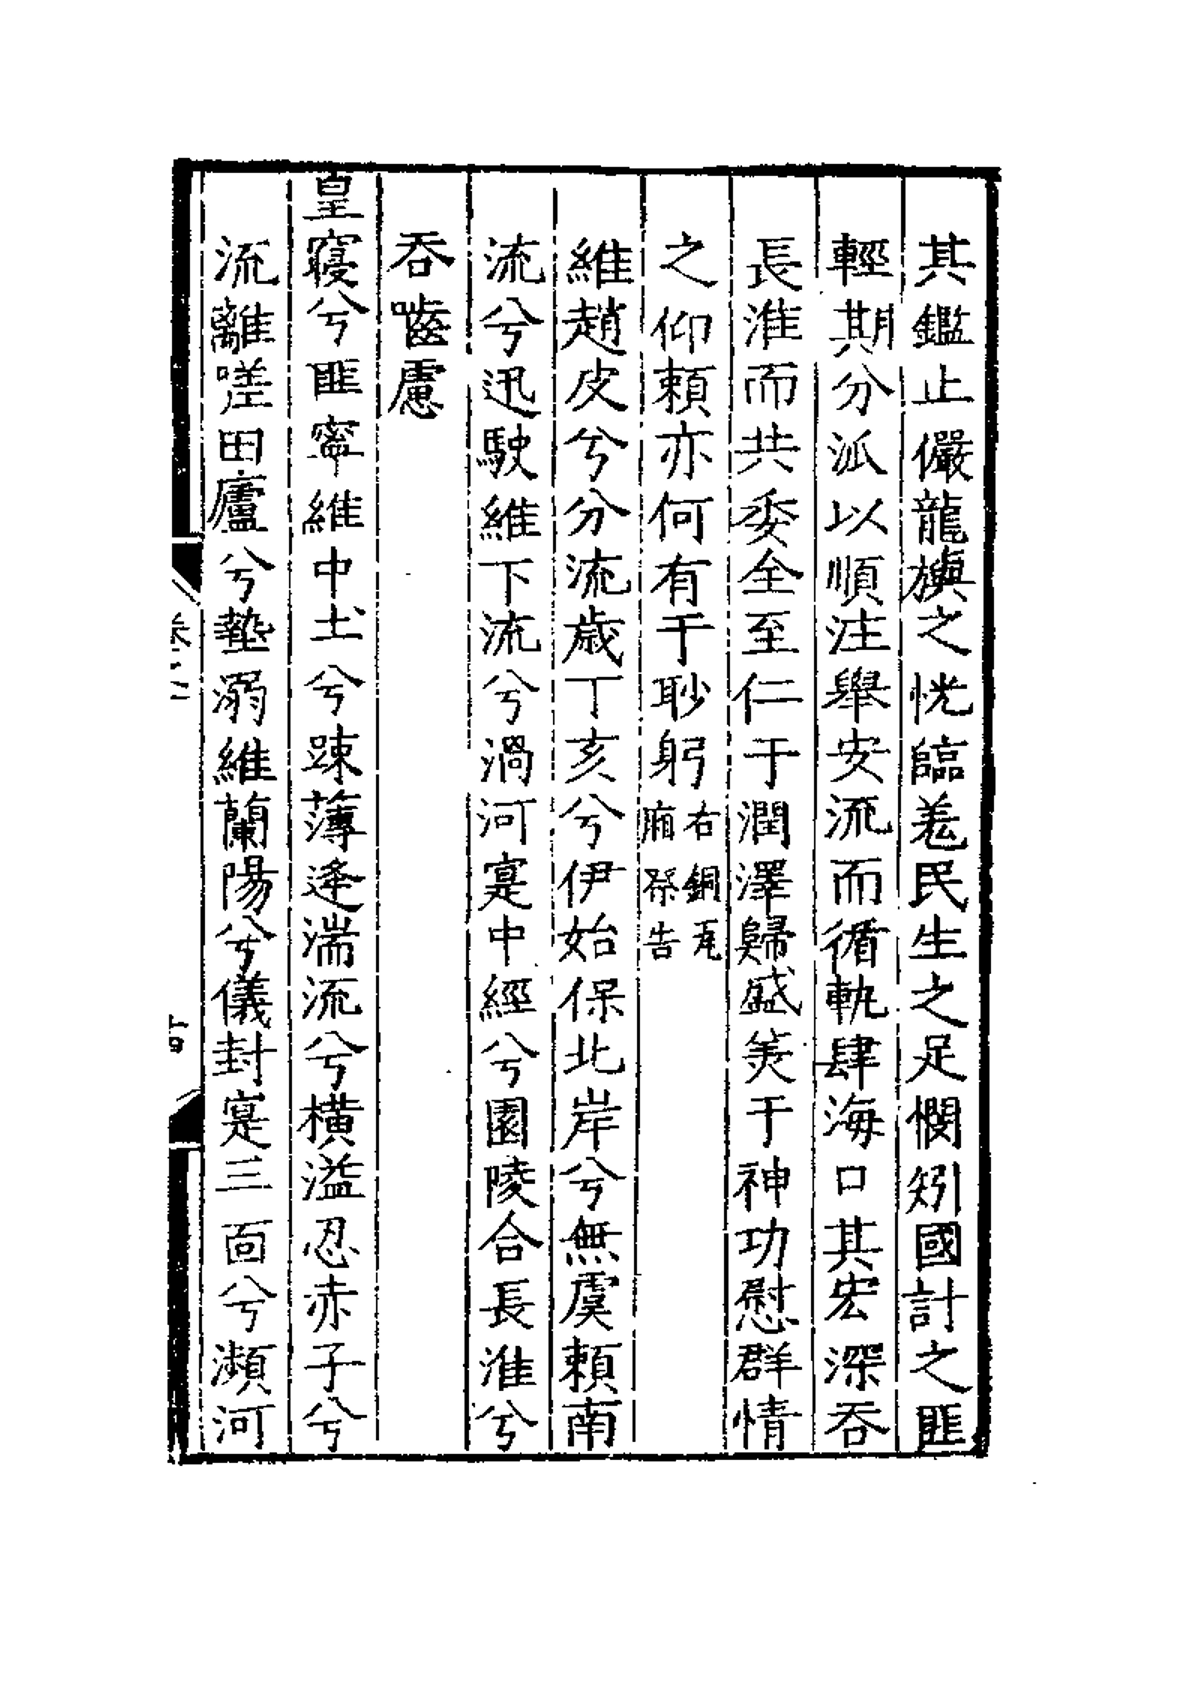 其鑑止儼龍旟之恍臨恙民生之足憫矧國計之匪
輕期分派以順注舉安流而循軌肆海口其宏深吞
長淮而共委全至仁于潤澤歸盛美于神功慰群情
之仰賴亦何有于眇躬右銅瓦廂祭告
維趙皮兮分流歲丁亥兮伊始保北岸兮無虞賴南
流兮迅駛維下流兮渦河寔中經兮園陵合長淮兮
吞嚙慮
皇寢兮匪寧維中土兮踈薄逢湍流兮橫溢忍赤子兮
流離嗟田廬兮墊溺維蘭陽兮儀封寔三面兮瀕河
卷之二